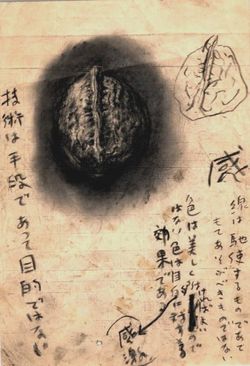 感
線は馳使するものであって
もてあそぶべきものではない
色は美しく
ればよいので
はない色は自分に対する
効果である
感激
技術は手段であって目的ではない